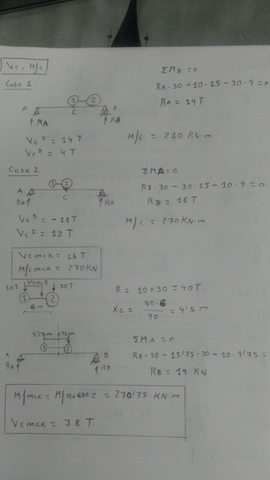 Vc, M/c
ΣMB = 0
Caso 1
RA·30 - 10·15 - 30·9 = 0
RA = 14T
1 2
A C B
RA RB
M/c = 210 KN·m
Vc I = 14T
Vc D = 4T
Caso 2
ΣMA = 0
RB·30 - 30·15 - 10·9 = 0
RB = 18T
1 2
A C
RA RB
M/c = 270KN·m
Vc D = -18T
Vc I = 12T
Vcmax = 18T
M/cmax = 270KN
10T 30T
R = 10+30 = 40T
1 2
Xc = 30·6 / 40 = 4'5m
6m
ΣMA = 0
1 2
A B
RB·30 - 15'75·30 - 10·9'75 =
RA RB
RB = 19 KN
M/max = M/RUEDA 2 = 270'75 KN·m
Vcmax = 38T.